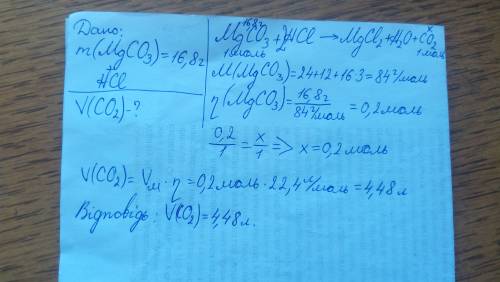 Дано:
m(MgCO3)=16,8г
+
HCl
V(CO2)-?
16,8г x
MgCO3+2HCl→MgCl2+H2O+CO2
1моль 1моль
M(MgCO3)=24+12+16·3=84г/моль
η(MgCO3)=16,8г/84г/моль=0,2моль
0,2/1=x/1=>x=0,2моль
V(CO2)=Vм·η=0,2моль·22,4л/моль=4,48л
Відповідь: V(CO2)=4,48л.